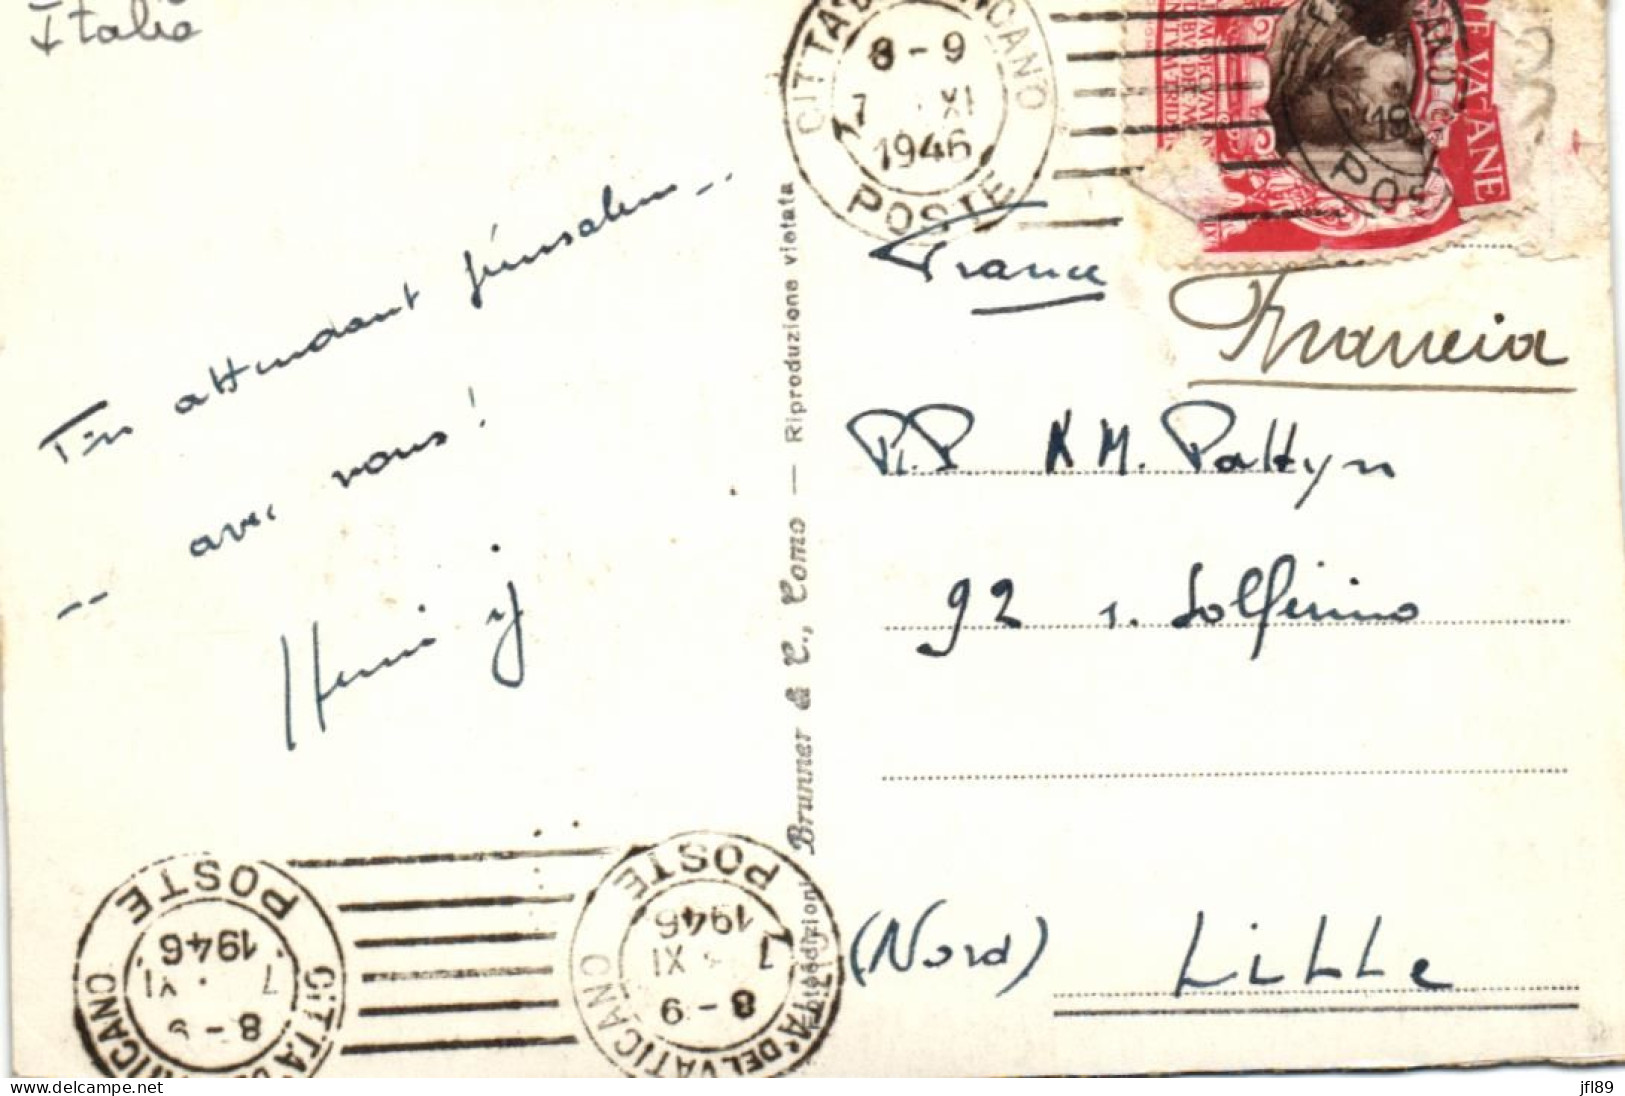 Italie
En attendant Jérusalem...
avec vous !
Henri
CITTA' DEL VATICANO
8-9
7 XI
1946
POSTE
POSTE VATICANE
France
Francia
R.P. K M. Pattyn
92 r. Solferino
(Nord) Lille
Brunner & C., Como — Riproduzione vietata
Fotoedizioni
CITTA' DEL VATICANO
8-9
7 XI
1946
POSTE
CITTA' DEL VATICANO
8-9
7 XI
1946
POSTE
delcampe.net
jfl89